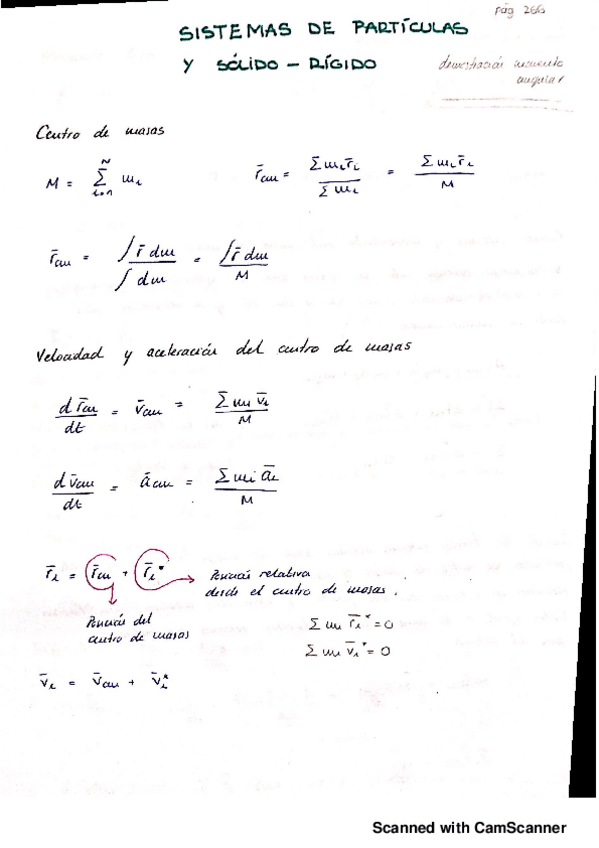 pág 266
SISTEMAS DE PARTÍCULAS
Y SÓLIDO - RÍGIDO
demostración momento
angular
Centro de masas
M = Σ_{i=1}^{N} m_i
r̄_cm = Σ m_i r̄_i / Σ m_i = Σ m_i r̄_i / M
r̄_cm = ∫ r̄ dm / ∫ dm = ∫ r̄ dm / M
Velocidad y aceleración del centro de masas
d r̄_cm / dt = v̄_cm = Σ m_i v̄_i / M
d v̄_cm / dt = ā_cm = Σ m_i ā_i / M
r̄_i = r̄_cm + r̄_i* → Posición relativa
desde el centro de masas.
Posición del
centro de masas
Σ m_i r̄_i* = 0
Σ m_i v̄_i* = 0
v̄_i = v̄_cm + v̄_i*
Scanned with CamScanner